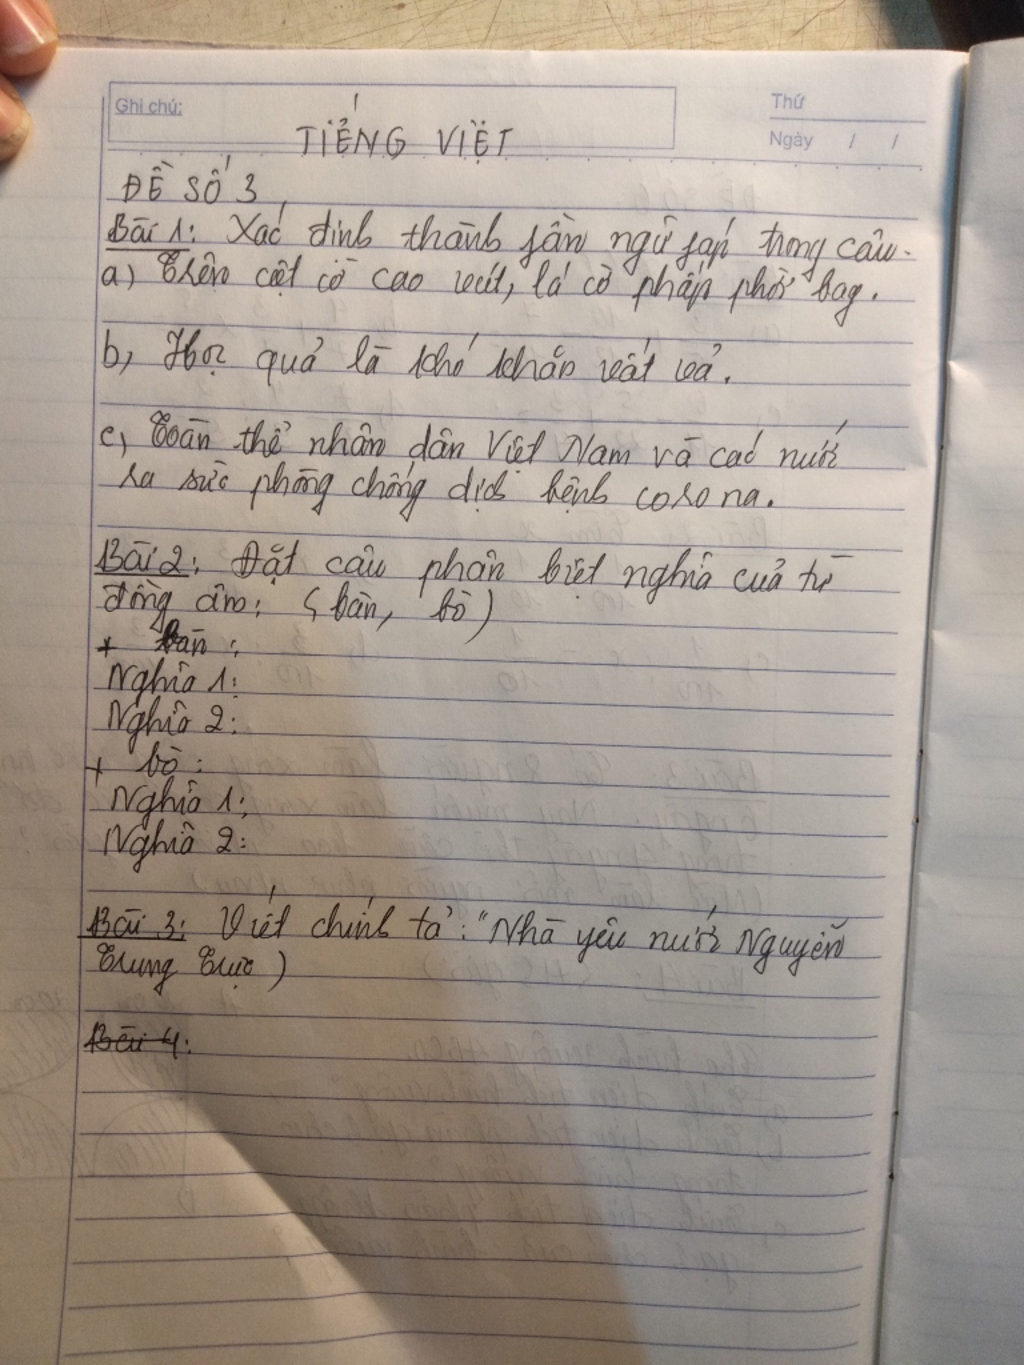 Ghi chú:
Thứ
Ngày / /
TIẾNG VIỆT
ĐỀ SỐ 3
Bài 1: Xác định thành phần ngữ pháp trong câu.
a) Trên cột cờ cao vút, lá cờ phấp phới bay.
b) Học quả là khó khăn vất vả.
c) Toàn thể nhân dân Việt Nam và các nước
ra sức phòng chống dịch bệnh corona.
Bài 2: Đặt câu phân biệt nghĩa của từ
đồng âm: (bàn, bò)
+ Bàn:
Nghĩa 1:
Nghĩa 2:
+ bò:
Nghĩa 1:
Nghĩa 2:
Bài 3: Viết chính tả: "Nhà yêu nước Nguyễn
Trung Trực)
Bài 4: